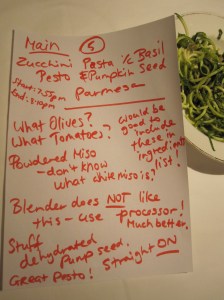 Main ⑤
Zucchini Pasta c̄ Basil
Pesto & Pumpkin Seed
Parmesan
Start: 7:55pm
End: 8:10pm
What Olives?
What Tomatoes?
would be
good to
include
these in
ingredients
list!
Powdered Miso
- don't know
what white miso is!
Blender does NOT like
this - use processor!
Much better.
Stuff
dehydrated
pump seed.
Straight ON
Great Pesto!